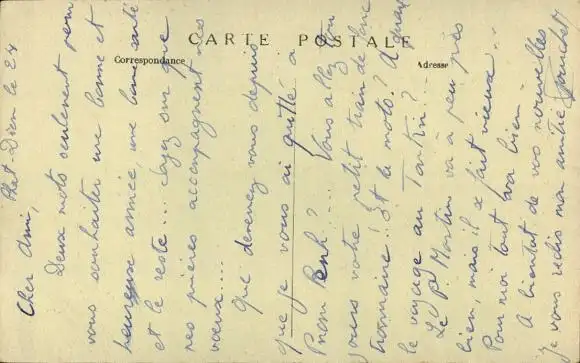 CARTE POSTALE
Correspondance
Adresse
Phat-Diem le 24
Cher Ami,
Deux mots seulement pour
vous souhaiter une bonne et
heureuse année, une bonne santé
et le reste... soyez sûr que
nos prières accompagnent nos
voeux....
Que devenez vous depuis
que je vous ai quitté à
Pnom Penh? ... Vous allez bon
jours votre petit train de
Normaine! Et la moto? A quand
le voyage au Tonkin?
Le Martin va à peu près
bien, mais il se fait vieux...
Pour moi tout va bien -
A bientôt de vos nouvelles
je vous redis mon amitié